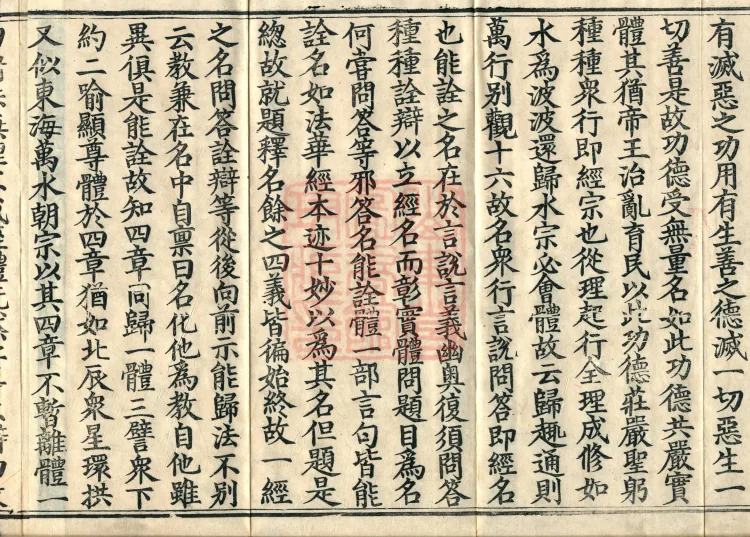 有滅惡之功用有生善之德滅一切惡生一
切善是故功德受無量名如此功德共嚴實
體其猶帝王治亂育民以此功德莊嚴聖躬
種種衆行即經宗也從理起行全理成修如
水爲波波還歸水宗必會體故云歸趣通則
萬行別觀十六故名衆行言說問答即經名
也能詮之名在於言說言義幽奧復須問答
種種詮辯以立經名而彰實體問題目爲名
何甞問答等邪答名能詮體一部言句皆能
詮名如法華經本迹十妙以爲其名但題是
總故就題釋名餘之四義皆徧始終故一經
之名問答詮辯等從後向前示能歸法不別
云教兼在名中自禀曰名化他爲教自他雖
異俱是能詮故知四章同歸一體三譬衆下
約二喻顯尊體於四章猶如北辰衆星環拱
又似東海萬水朝宗以其四章不暫離體一